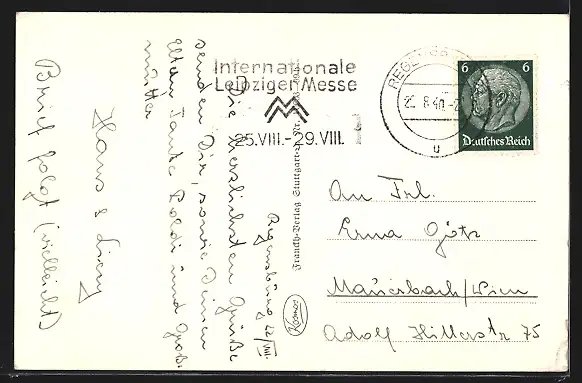 Internationale
Leipziger Messe
25.VIII. - 29.VIII.
REGENSB
8.40.-
u
6 6
Deutsches Reich
Regensburg, 22/VIII.
Die herzlichsten Grüße
senden Dir, sowie Deinen
Eltern Tante Poldi und Groß-
mutter
Hans &
Brief folgt (vielleicht)
Franckh-Verlag Stuttgart
Kosmos
An Frl.
Erna Götz
Mauerbach/Wien
Adolf Hitlerstr 75